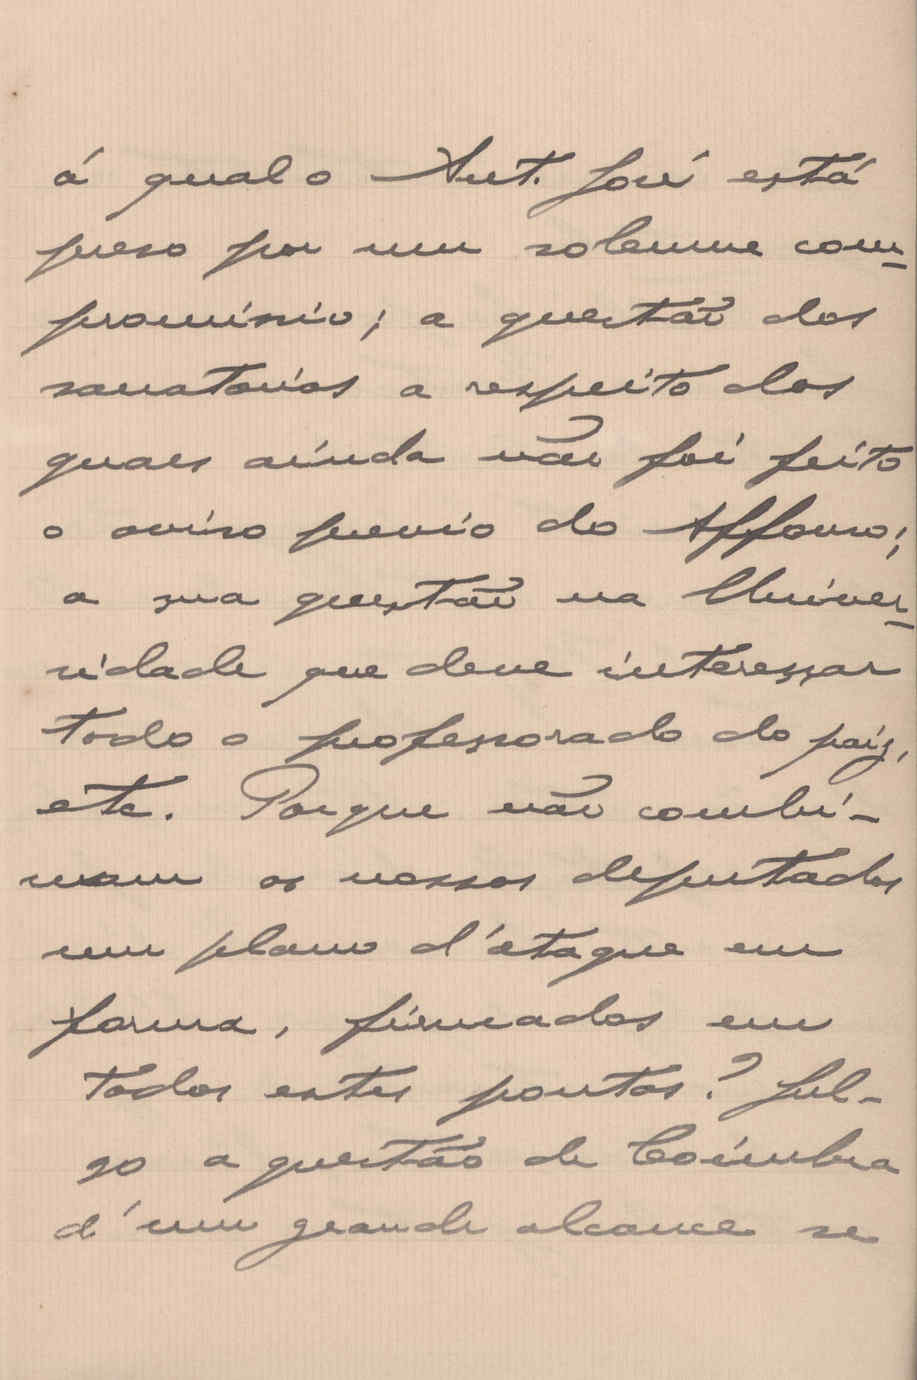 á qual o Ant. José está
preso por um solemne com-
promissio; a questão dos
sanatorios a respeito dos
quaes ainda não foi feito
o aviso previo do Affonso;
a sua questão na Univer-
sidade que deve interessar
todo o professorado do paiz,
etc. Porque não combi-
nam os nossos deputados
um plano d'ataque em
forma, firmados em
todos estes pontos? Jul-
go a questão de Coimbra
d'um grande alcance se